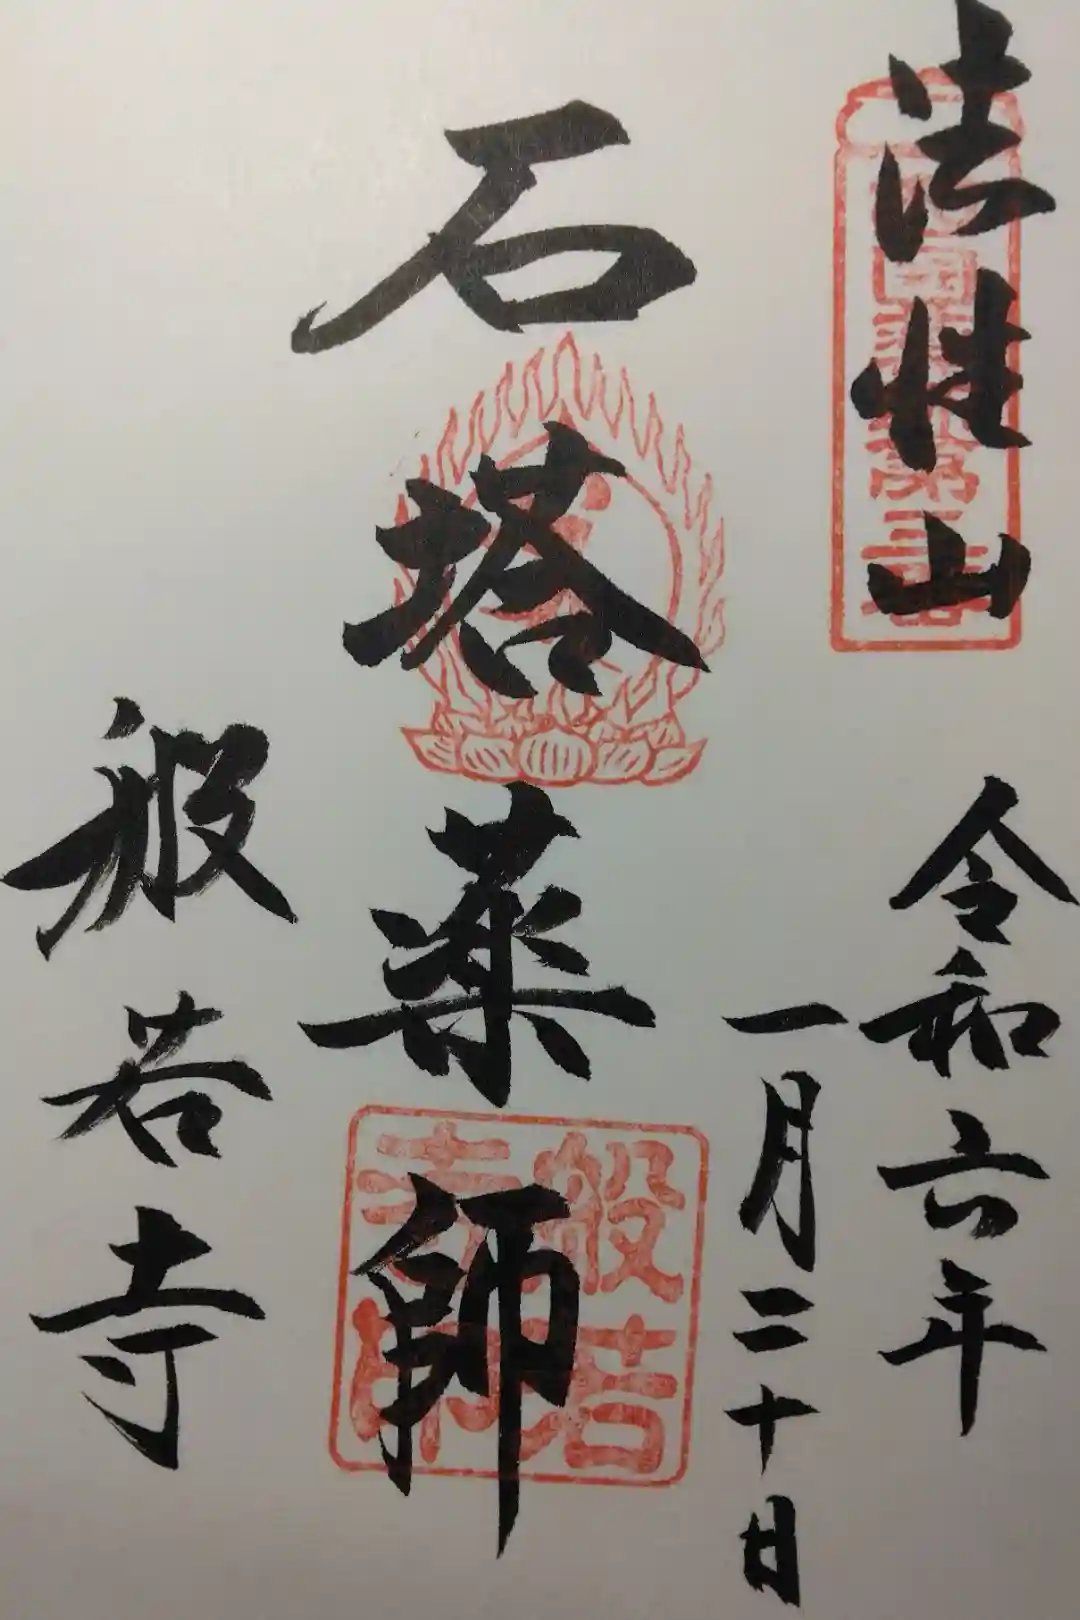 法性山
令和六年
一月二十日
石塔薬師
般若寺
般若
寺印